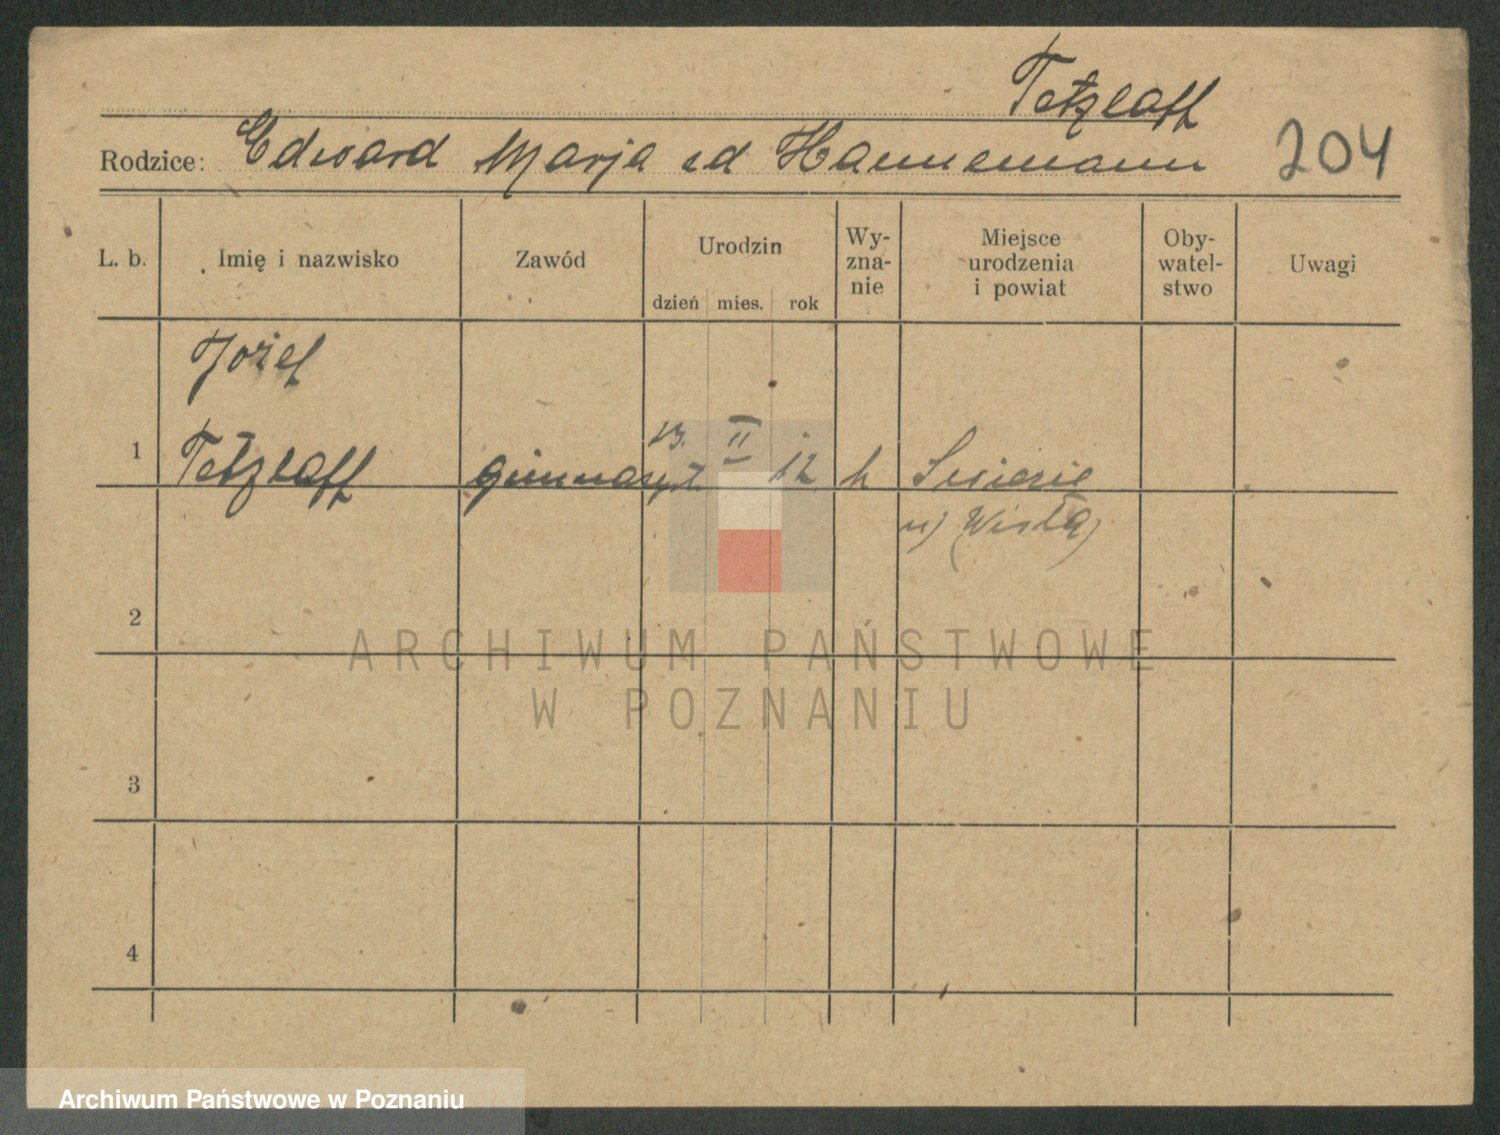 Tetzlaff
Rodzice: Edward Marja zd Hannemann 204
L. b. Imię i nazwisko Zawód Urodzin dzień mies. rok Wy-znanie Miejsce urodzenia i powiat Oby-watel-stwo Uwagi
Józef
1 Tetzlaff gimnazyst. 13. II 12 k
n) (Wisłą)
2
3
4
ARCHIWUM PAŃSTWOWE
W POZNANIU
Archiwum Państwowe w Poznaniu